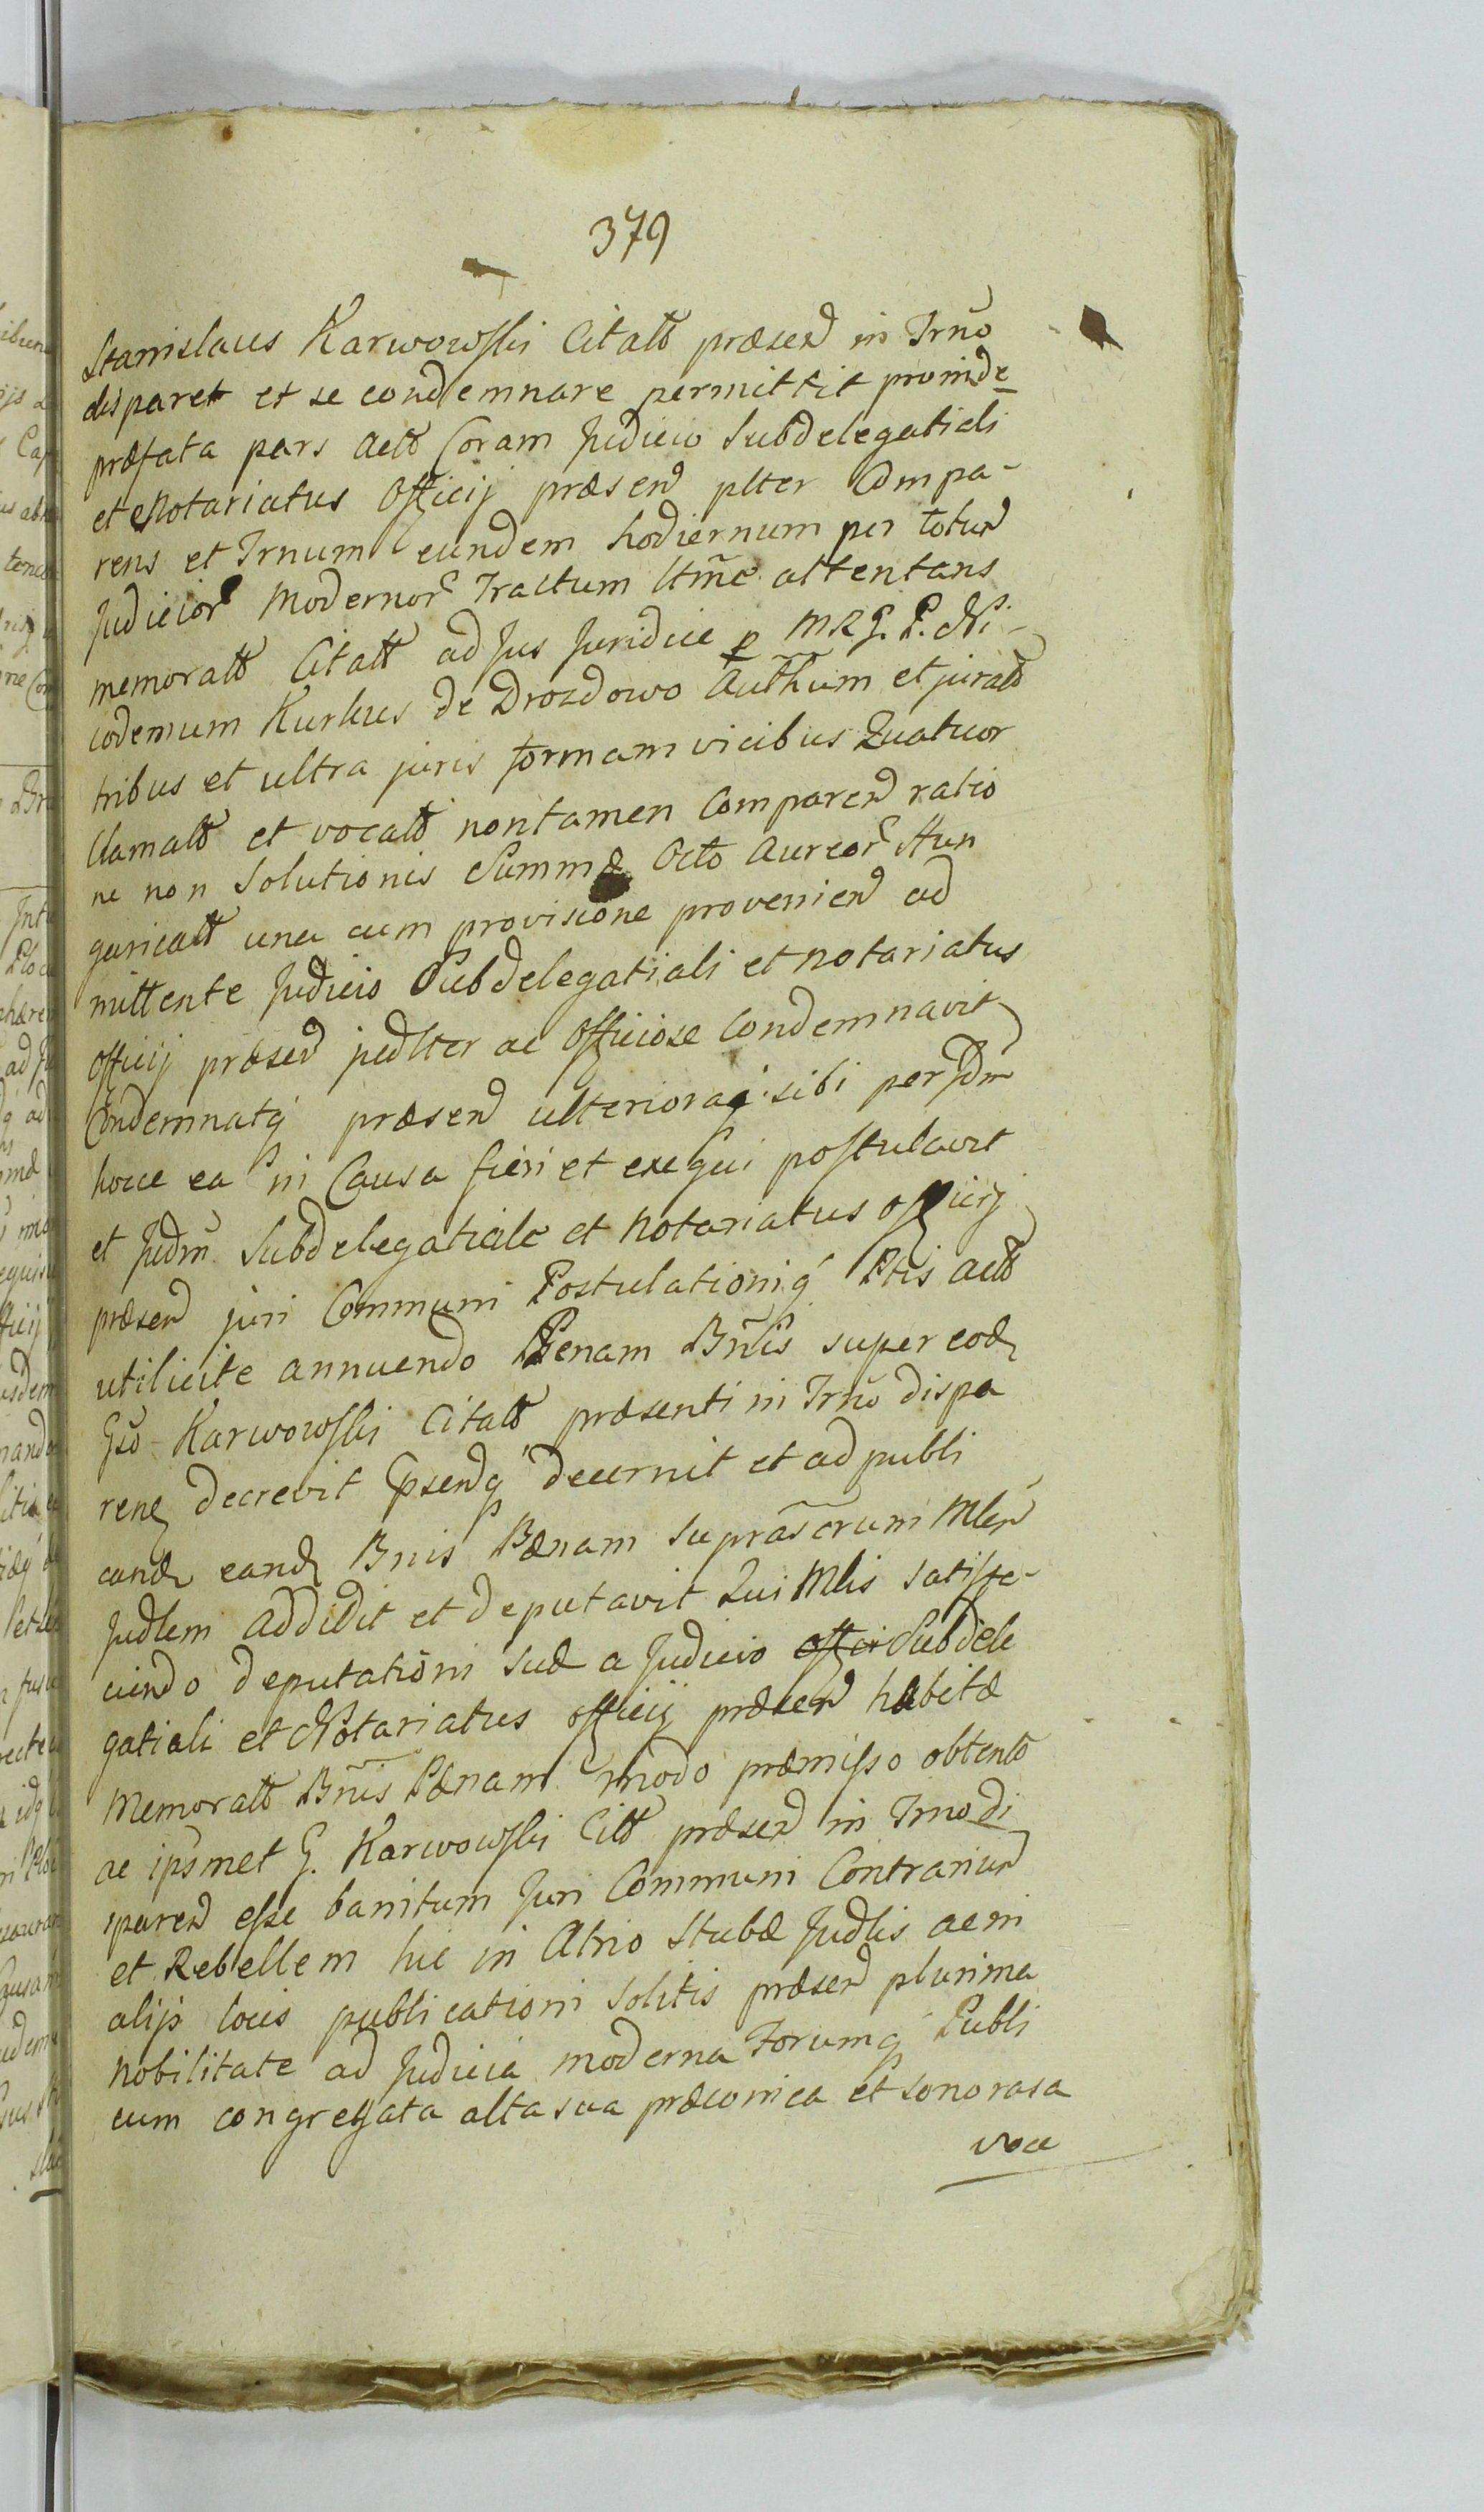 379
Stanislaus Karwowski Citatt præsen in Trño
disparet et se condemnare permittit proinde
præfata pars Actt Coram Judicio Subdelegatiali
et Notariatus Officij præsen plter Compa-
rens et Trnum eundem hodiernum per totum
Judicior Modernor Tractum ltme attentans
memoratt Citatt ad Jus Juridice p MRG. P. Ni-
codemum Kurkus de Drozdowo Authum et juratt
tribus et ultra juris formam vicibus Quatuor
Clamatt et vocatt non tamen Comparen ratio
ne non Solutionis Summæ Octo Aureor Hun
garicatt una cum provisione provenien ad
mittente Judicio Subdelegatiali et Notariatus
Officij præsen jedlter ac Officiose Condemnavit
Condemnatq præsen ulterioraq sibi per Jdm
hocce ea in Causa fieri et exequi postulavit
et Judm Subdelegatiale et Notariatus officij
præsen juri Communi Postulationiq Ptis Actt
uti licite annuendo Pænam Bñis super eod
Gso Karwowski Citatt præsenti in Trño dispa
ren decrevit Ppsenq decernit et ad publi
cand eand Bnis Pænam suprascrum Mlem
Judlem addidit et deputavit Qui Mlis satisfa-
ciendo deputationi suæ a Judicio offici Subdele
gatiali et Notariatus officij præsen habitæ
Memoratt Bñis Pænam modo præmisso obtento
ac ipsmet G. Karwowski Citt præsen in Trno di
sparen esse banitum Juri Communi Contrarium
et Rebellem hic in Atrio Stubæ Judlis ac in
alijs locis publicationi solitis præsen plurima
Nobilitate ad Judicia moderna Forumq Publi
cum congregata alta sua præconica et sonorasa
voce